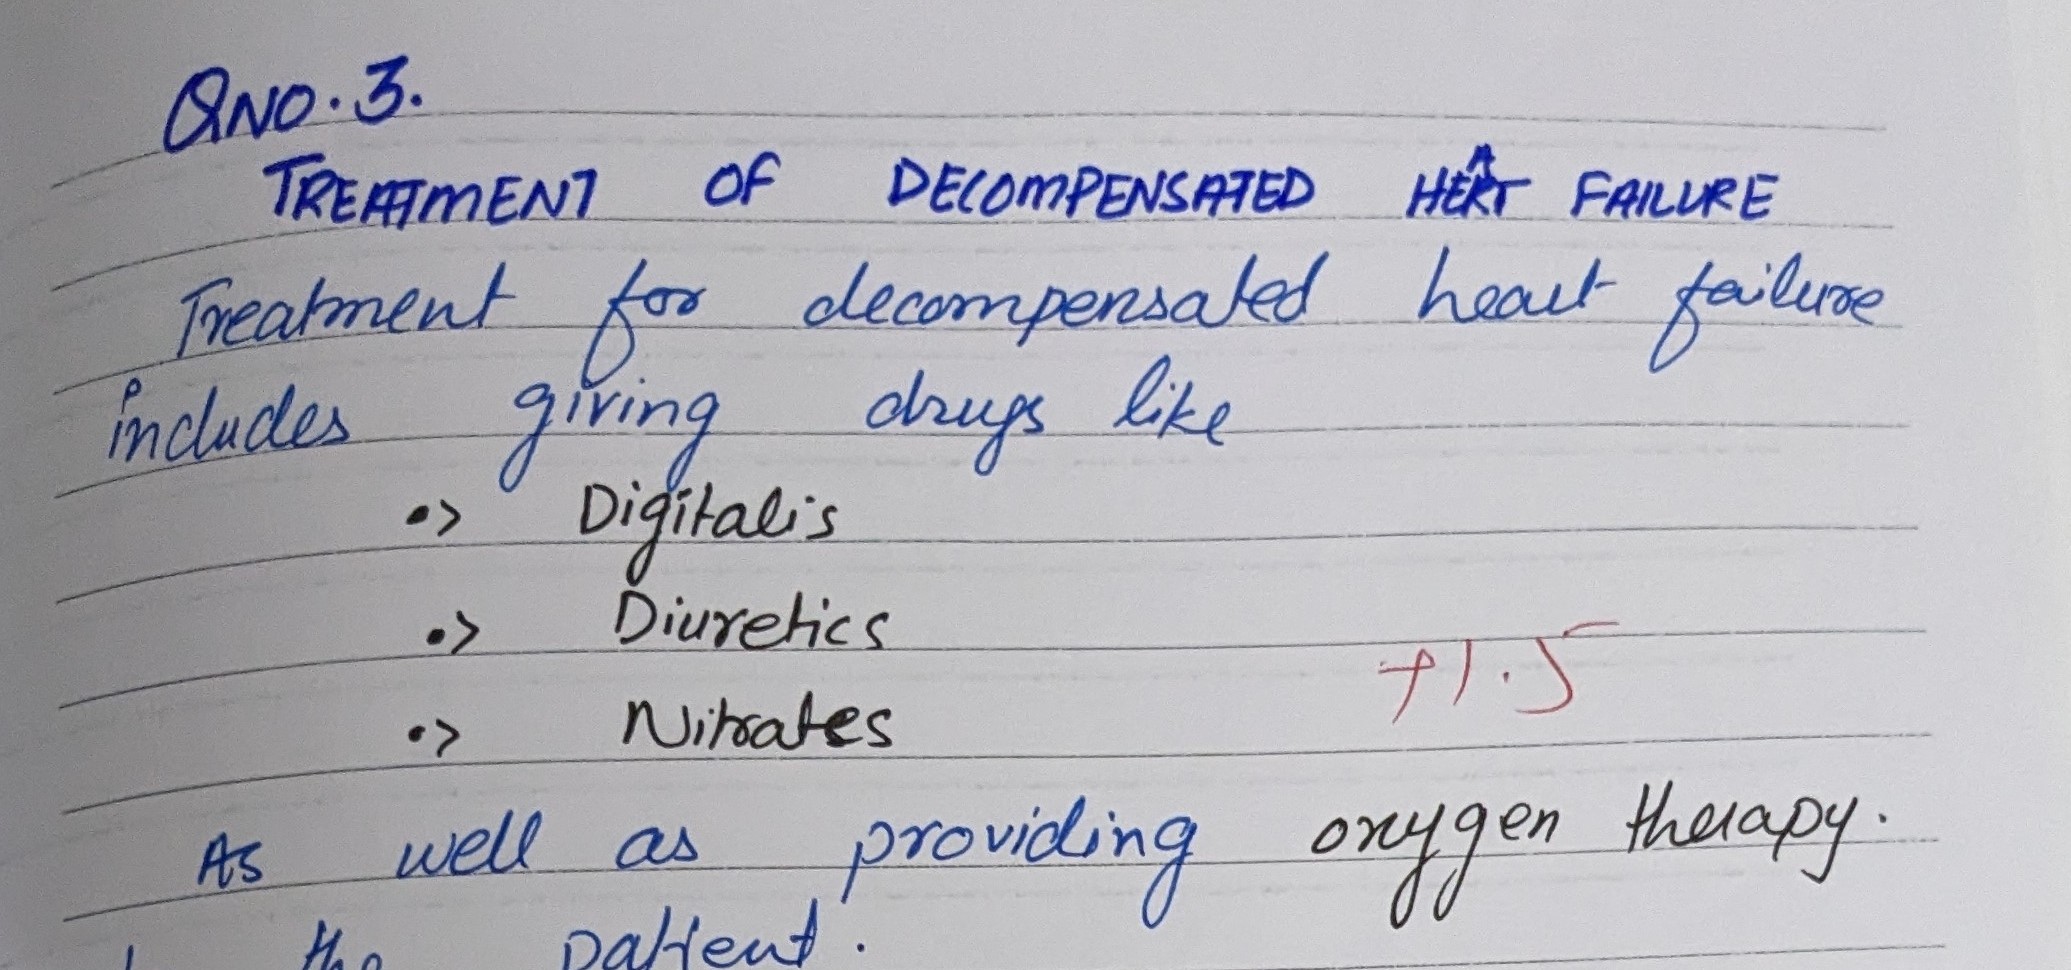 QNO.3.
TREATMENT OF DECOMPENSATED HEART FAILURE
Treatment for decompensated heart failure
includes giving drugs like
•> Digitalis
•> Diuretics
+1.5
•> Nitrates
As well as providing oxygen therapy.
the patient.